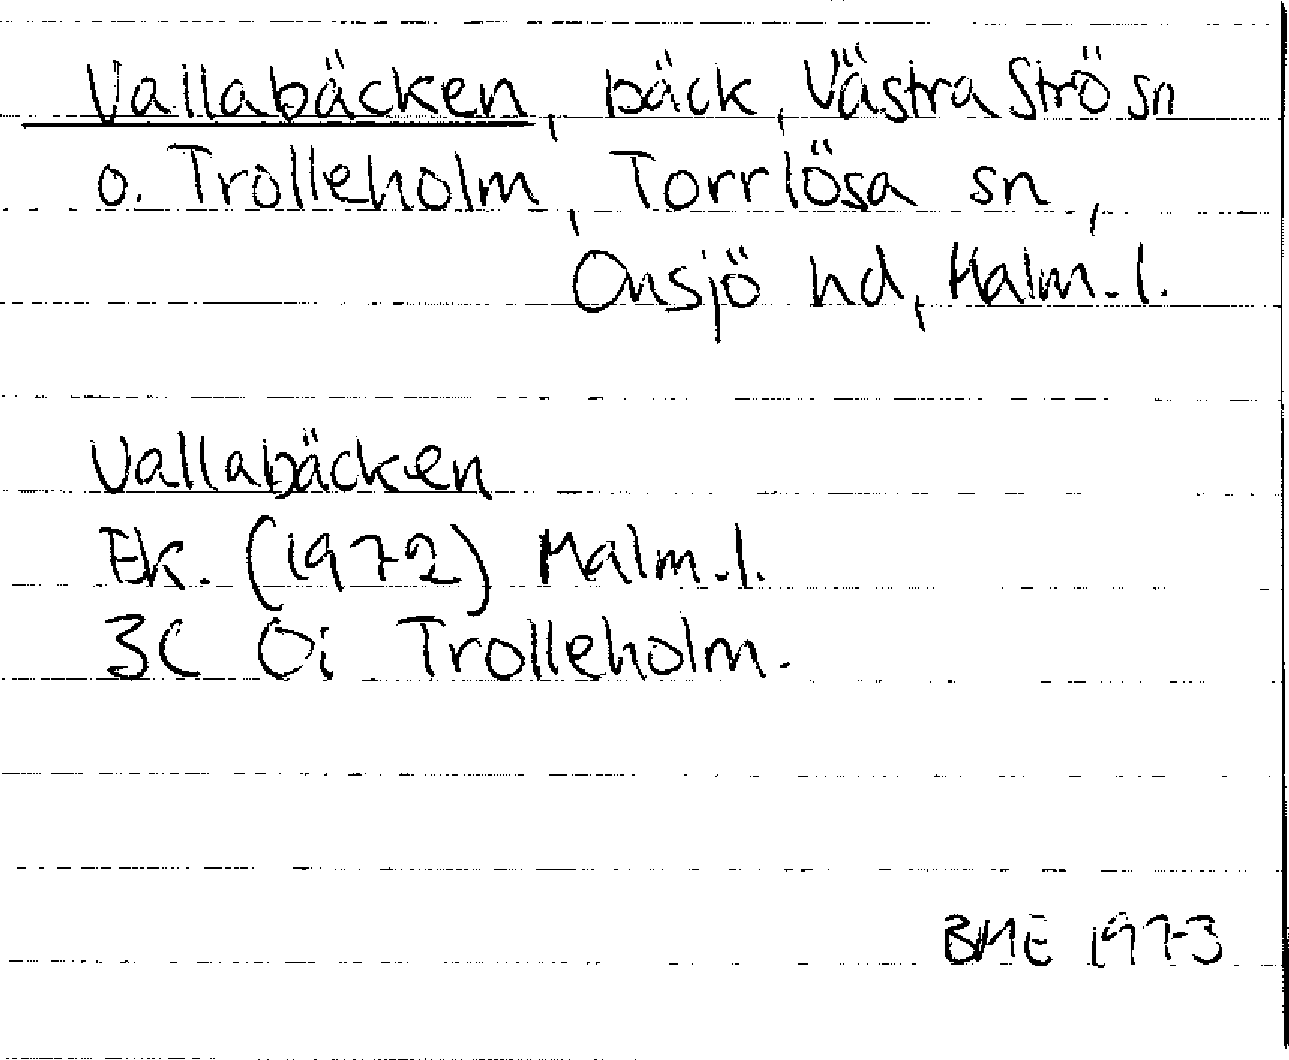 Vallabäcken, bäck, Västra Strö sn
o. Trolleholm, Torrlösa sn,
Onsjö hd, Malm. l.
Vallabäcken
Ek. (1972) Malm. l.
3C 0i Trolleholm.
BME 1973